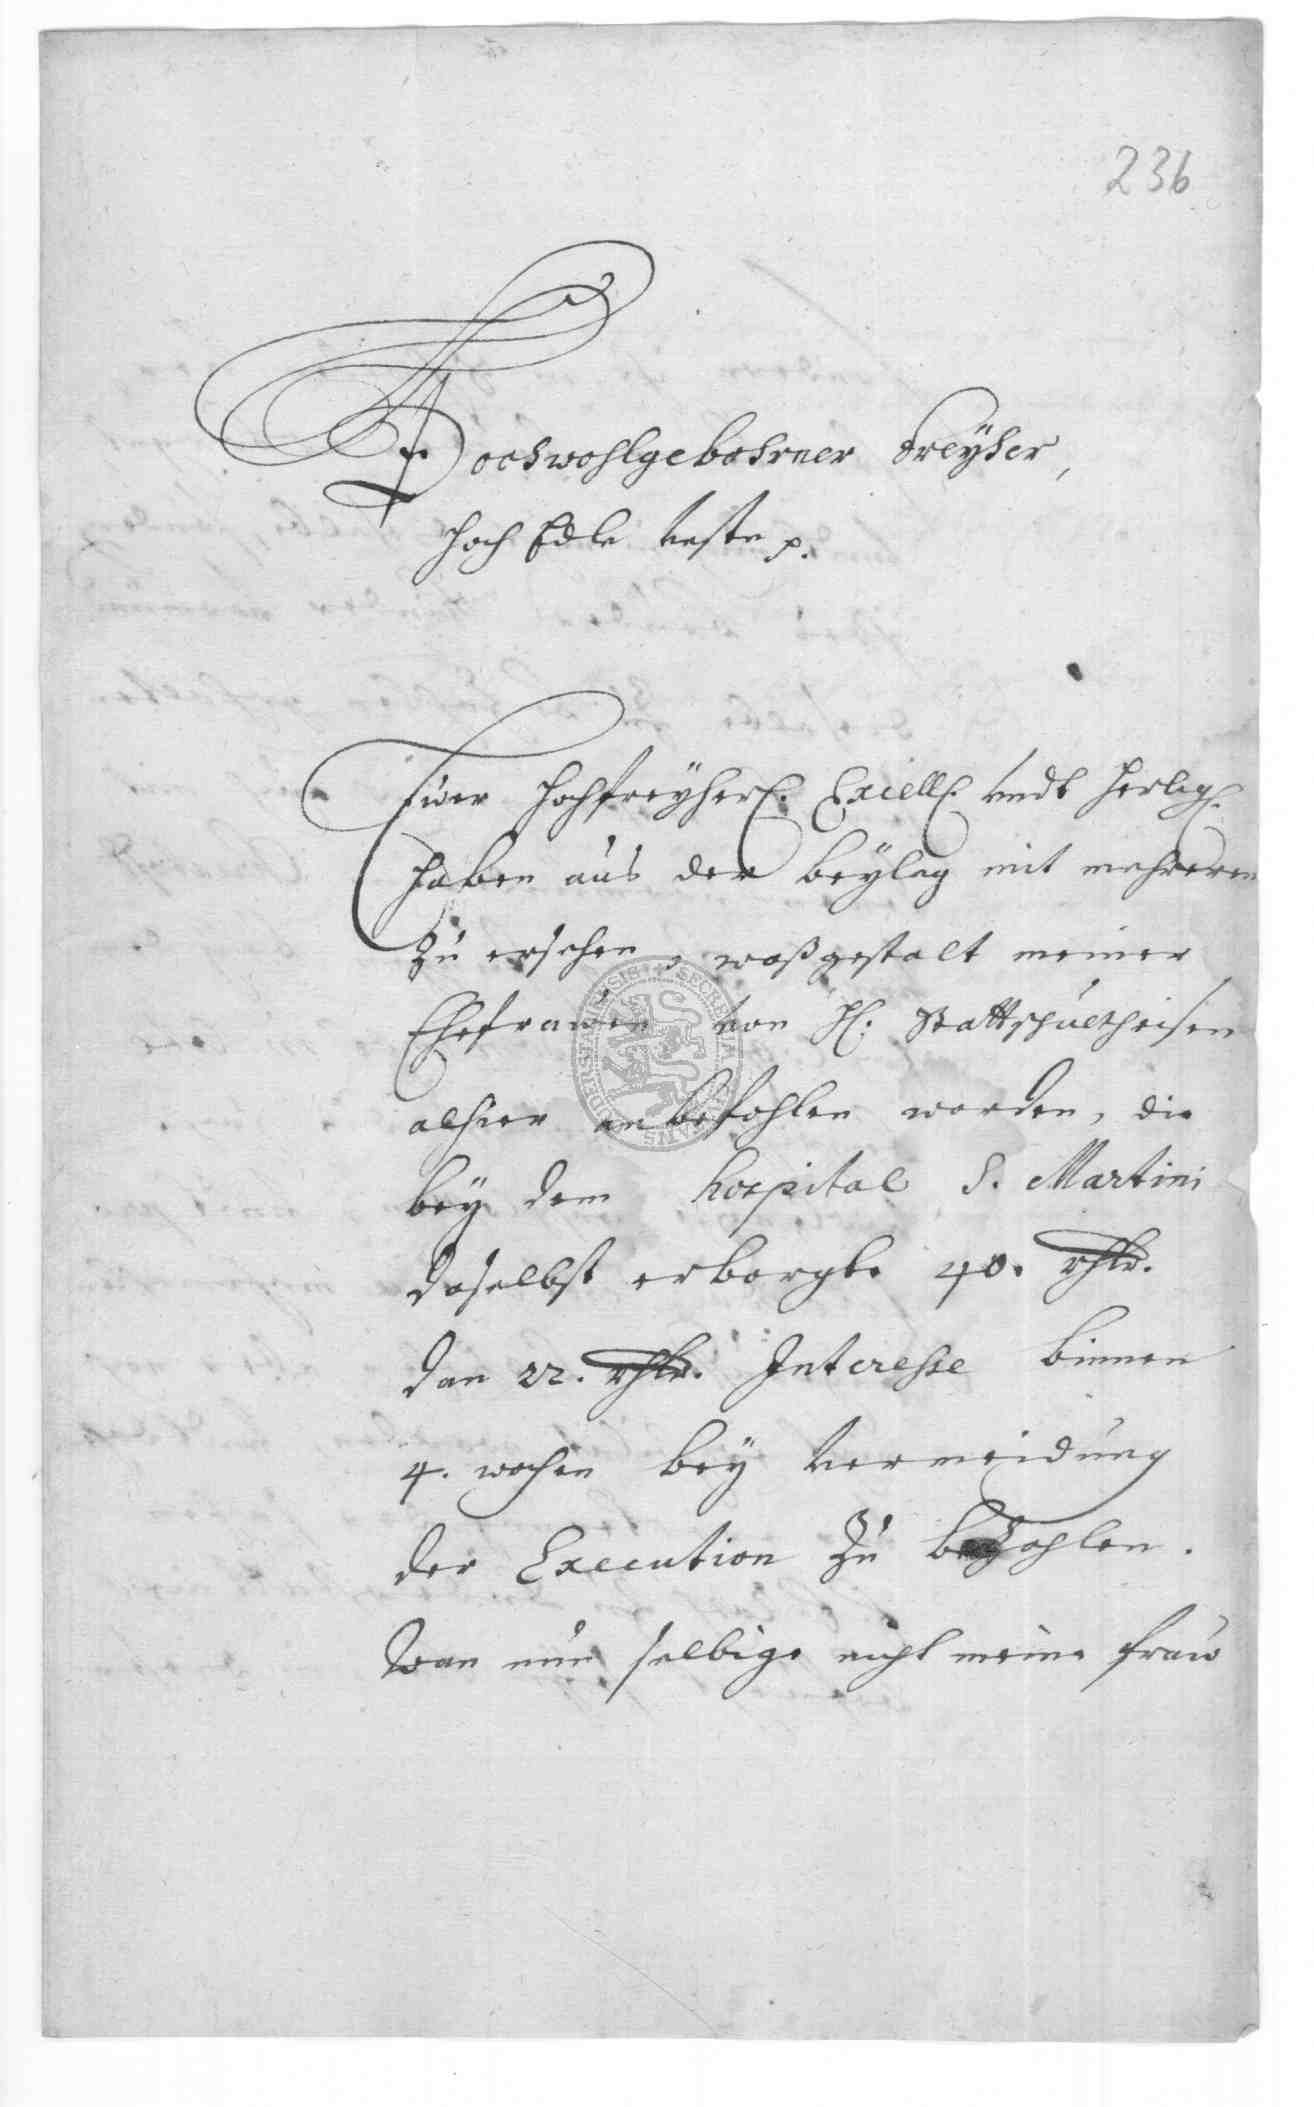 236
Hochwohlgebohrner Freyher,
Hoch Edle Veste p.
Euer Hochfreyherl. Excell. undt Herlig.
haben aus der beylag mit mehreren
zu ersehen, waßgestalt meiner
Ehefrawen von H. Stattschultheisen
alhier anbefohlen worden, die
bey dem hospital S. Martini
daselbst erborgte 40. rhlr.
dan 22. rhlr. Interesse binnen
4. wochen bey vermeidung
der Execution zu bezahlen.
Wan nun selbige nicht meine fraw